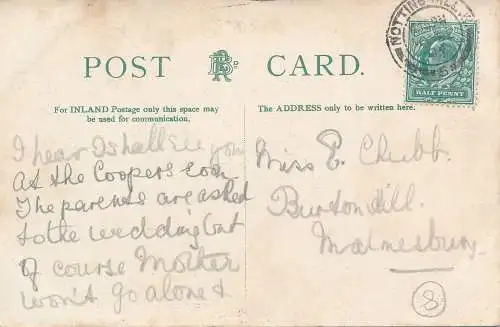 POST CARD.
For INLAND Postage only this space may
be used for communication.
The ADDRESS only to be written here.
NOTTING HILL
HALF PENNY
I hear I shall see you
at the Coopers soon
The parents are asked
to the wedding but
of course Mother
won't go alone &
Miss E. Chubb.
Burton Hill.
Malmesbury
8